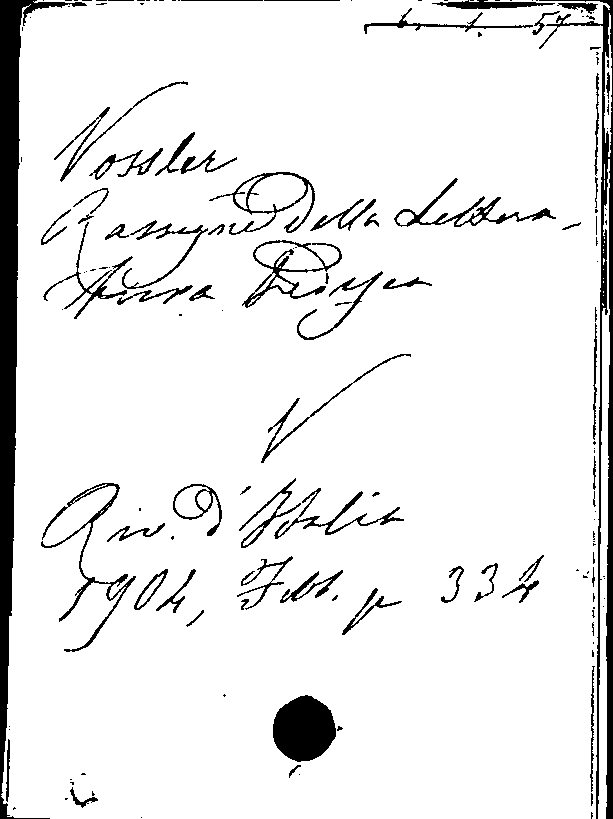 6. 1. 57
Vossler
Rassegna della Lettera-
tura Tedesca
V
Riv. d'Italia
1904, Febb. p 334